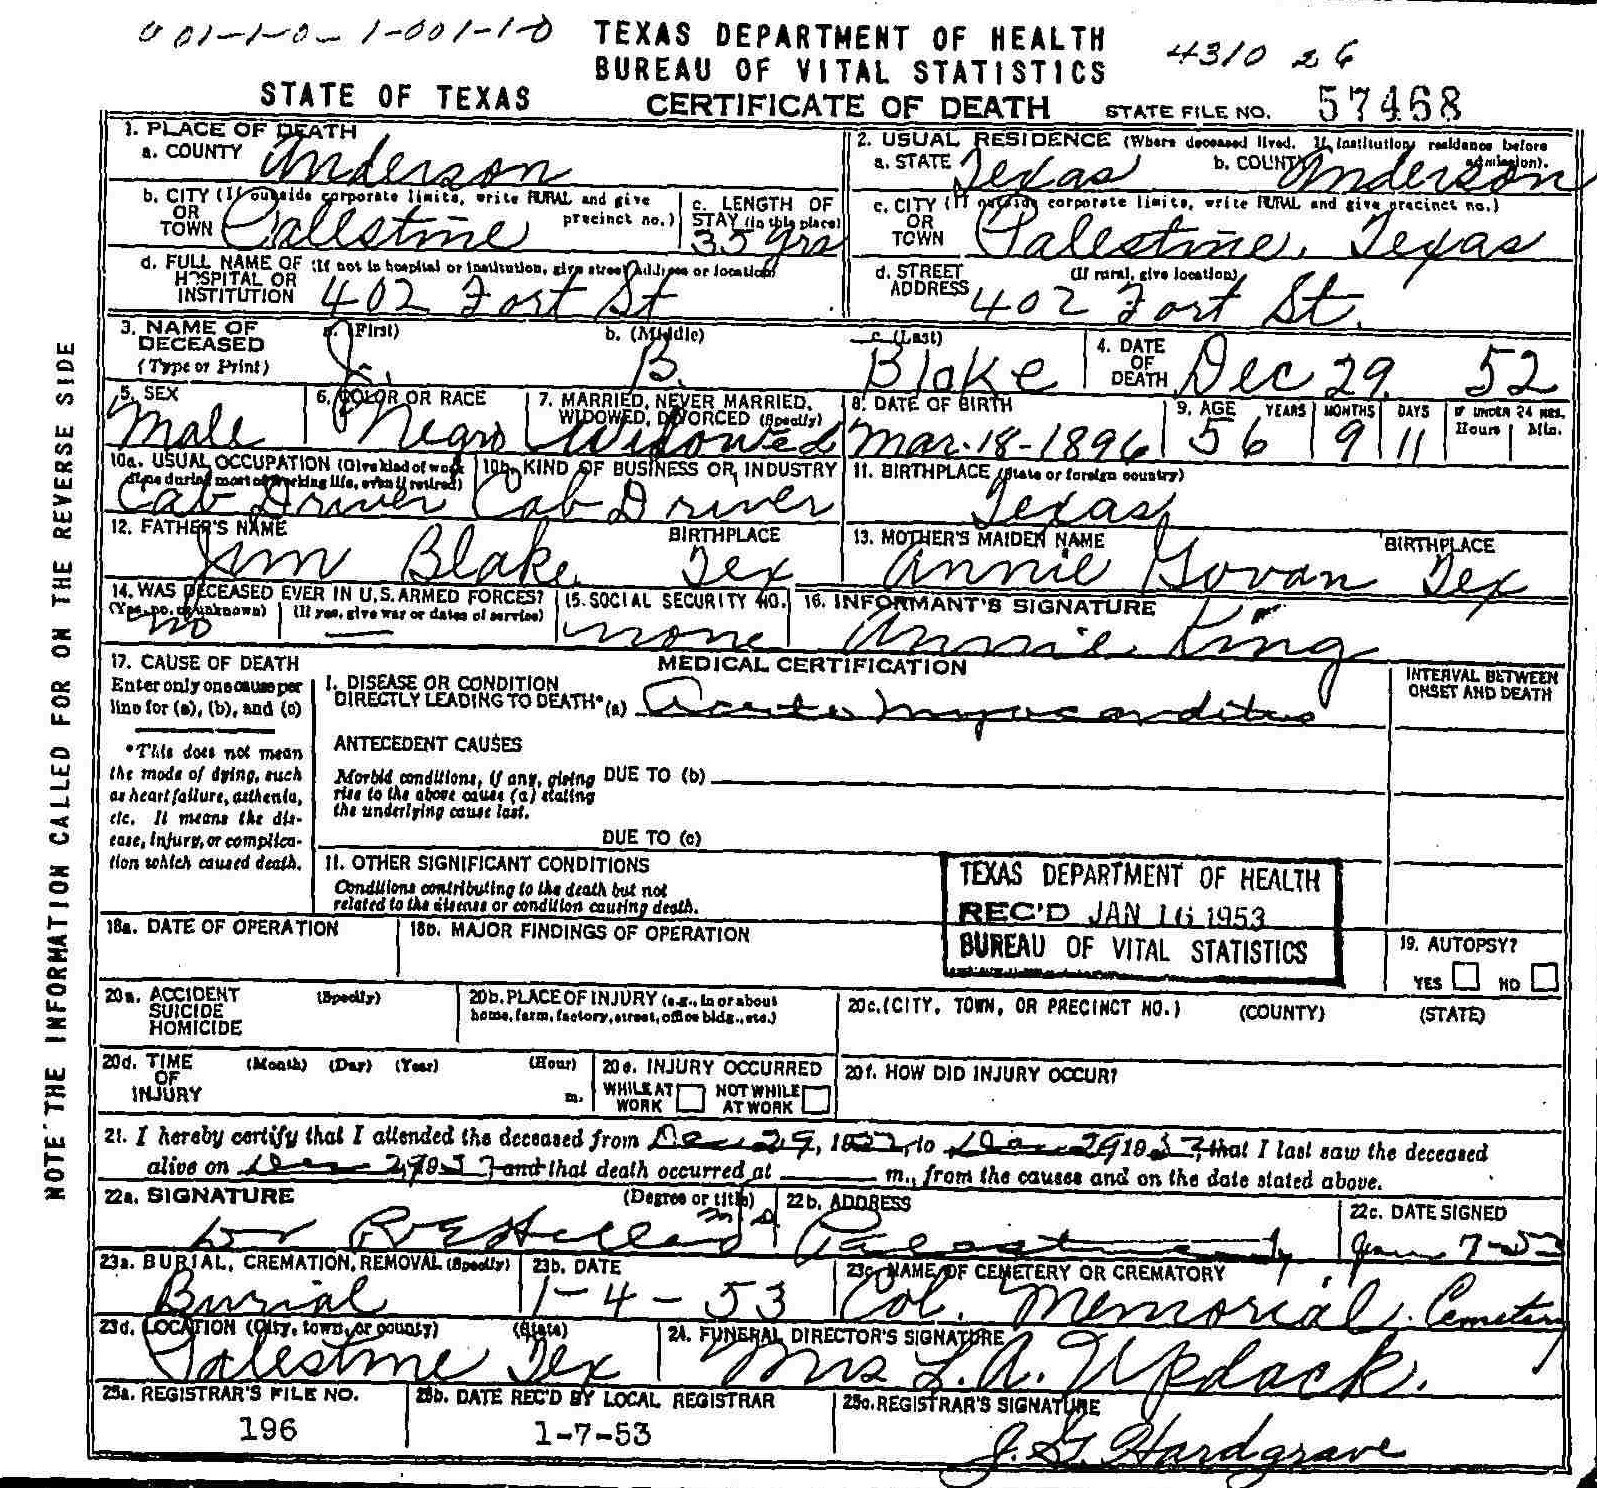 001-1-0-1-001-1-0 TEXAS DEPARTMENT OF HEALTH 4310 26
BUREAU OF VITAL STATISTICS
STATE OF TEXAS CERTIFICATE OF DEATH STATE FILE NO. 57468
NOTE THE INFORMATION CALLED FOR ON THE REVERSE SIDE
1. PLACE OF DEATH
a. COUNTY Anderson
2. USUAL RESIDENCE (Where deceased lived. If institution, residence before admission).
a. STATE Texas b. COUNTY Anderson
b. CITY (If outside corporate limits, write RURAL and give precinct no.)
OR
TOWN Palestine
c. LENGTH OF
STAY (in this place)
35 yrs
c. CITY (If outside corporate limits, write RURAL and give precinct no.)
OR
TOWN Palestine, Texas
d. FULL NAME OF (If not in hospital or institution, give street address or location)
HOSPITAL OR
INSTITUTION 402 Fort St
d. STREET (If rural, give location)
ADDRESS 402 Fort St.
3. NAME OF
DECEASED
(Type or Print)
a. (First) b. (Middle) c. (Last)
J. B. Blake
4. DATE
OF
DEATH Dec 29, 52
5. SEX
Male
6. COLOR OR RACE
Negro
7. MARRIED, NEVER MARRIED,
WIDOWED, DIVORCED (Specify)
Widowed
8. DATE OF BIRTH
Mar-18-1896
9. AGE YEARS MONTHS DAYS IF UNDER 24 HRS.
Hours Min.
56 9 11
10a. USUAL OCCUPATION (Give kind of work
done during most of working life, even if retired)
Cab Driver
10b. KIND OF BUSINESS OR INDUSTRY
Cab Driver
11. BIRTHPLACE (State or foreign country)
Texas
12. FATHER'S NAME BIRTHPLACE
Jim Blake Tex
13. MOTHER'S MAIDEN NAME BIRTHPLACE
Annie Govan Tex
14. WAS DECEASED EVER IN U.S. ARMED FORCES?
(Yes, no, or unknown) (If yes, give war or dates of service)
no —
15. SOCIAL SECURITY NO.
none
16. INFORMANT'S SIGNATURE
Annie King
17. CAUSE OF DEATH
Enter only one cause per
line for (a), (b), and (c)
*This does not mean
the mode of dying, such
as heart failure, asthenia,
etc. It means the dis-
ease, injury, or complica-
tion which caused death.
MEDICAL CERTIFICATION
INTERVAL BETWEEN
ONSET AND DEATH
I. DISEASE OR CONDITION
DIRECTLY LEADING TO DEATH* (a) Acute Myocarditis
ANTECEDENT CAUSES
Morbid conditions, if any, giving DUE TO (b)
rise to the above cause (a) stating
the underlying cause last.
DUE TO (c)
II. OTHER SIGNIFICANT CONDITIONS
Conditions contributing to the death but not
related to the disease or condition causing death.
TEXAS DEPARTMENT OF HEALTH
REC'D JAN 16 1953
BUREAU OF VITAL STATISTICS
18a. DATE OF OPERATION
18b. MAJOR FINDINGS OF OPERATION
19. AUTOPSY?
YES NO
20a. ACCIDENT (Specify)
SUICIDE
HOMICIDE
20b. PLACE OF INJURY (e.g., in or about
home, farm, factory, street, office bldg., etc.)
20c. (CITY, TOWN, OR PRECINCT NO.) (COUNTY) (STATE)
20d. TIME (Month) (Day) (Year) (Hour)
OF
INJURY m.
20e. INJURY OCCURRED
WHILE AT NOT WHILE
WORK AT WORK
20f. HOW DID INJURY OCCUR?
21. I hereby certify that I attended the deceased from Dec 29, 1952, to Dec 29 1953, that I last saw the deceased
alive on Dec 29, 1953, and that death occurred at m., from the causes and on the date stated above.
22a. SIGNATURE (Degree or title)
Dr M D
22b. ADDRESS
Palestine
22c. DATE SIGNED
Jan 7-53
23a. BURIAL, CREMATION, REMOVAL (Specify)
Burial
23b. DATE
1-4-53
23c. NAME OF CEMETERY OR CREMATORY
Col. Memorial Cemetery
23d. LOCATION (City, town, or county) (State)
Palestine Tex
24. FUNERAL DIRECTOR'S SIGNATURE
Mrs L. A. Updack.
25a. REGISTRAR'S FILE NO.
196
25b. DATE REC'D BY LOCAL REGISTRAR
1-7-53
25c. REGISTRAR'S SIGNATURE
J. G. Hardgrave